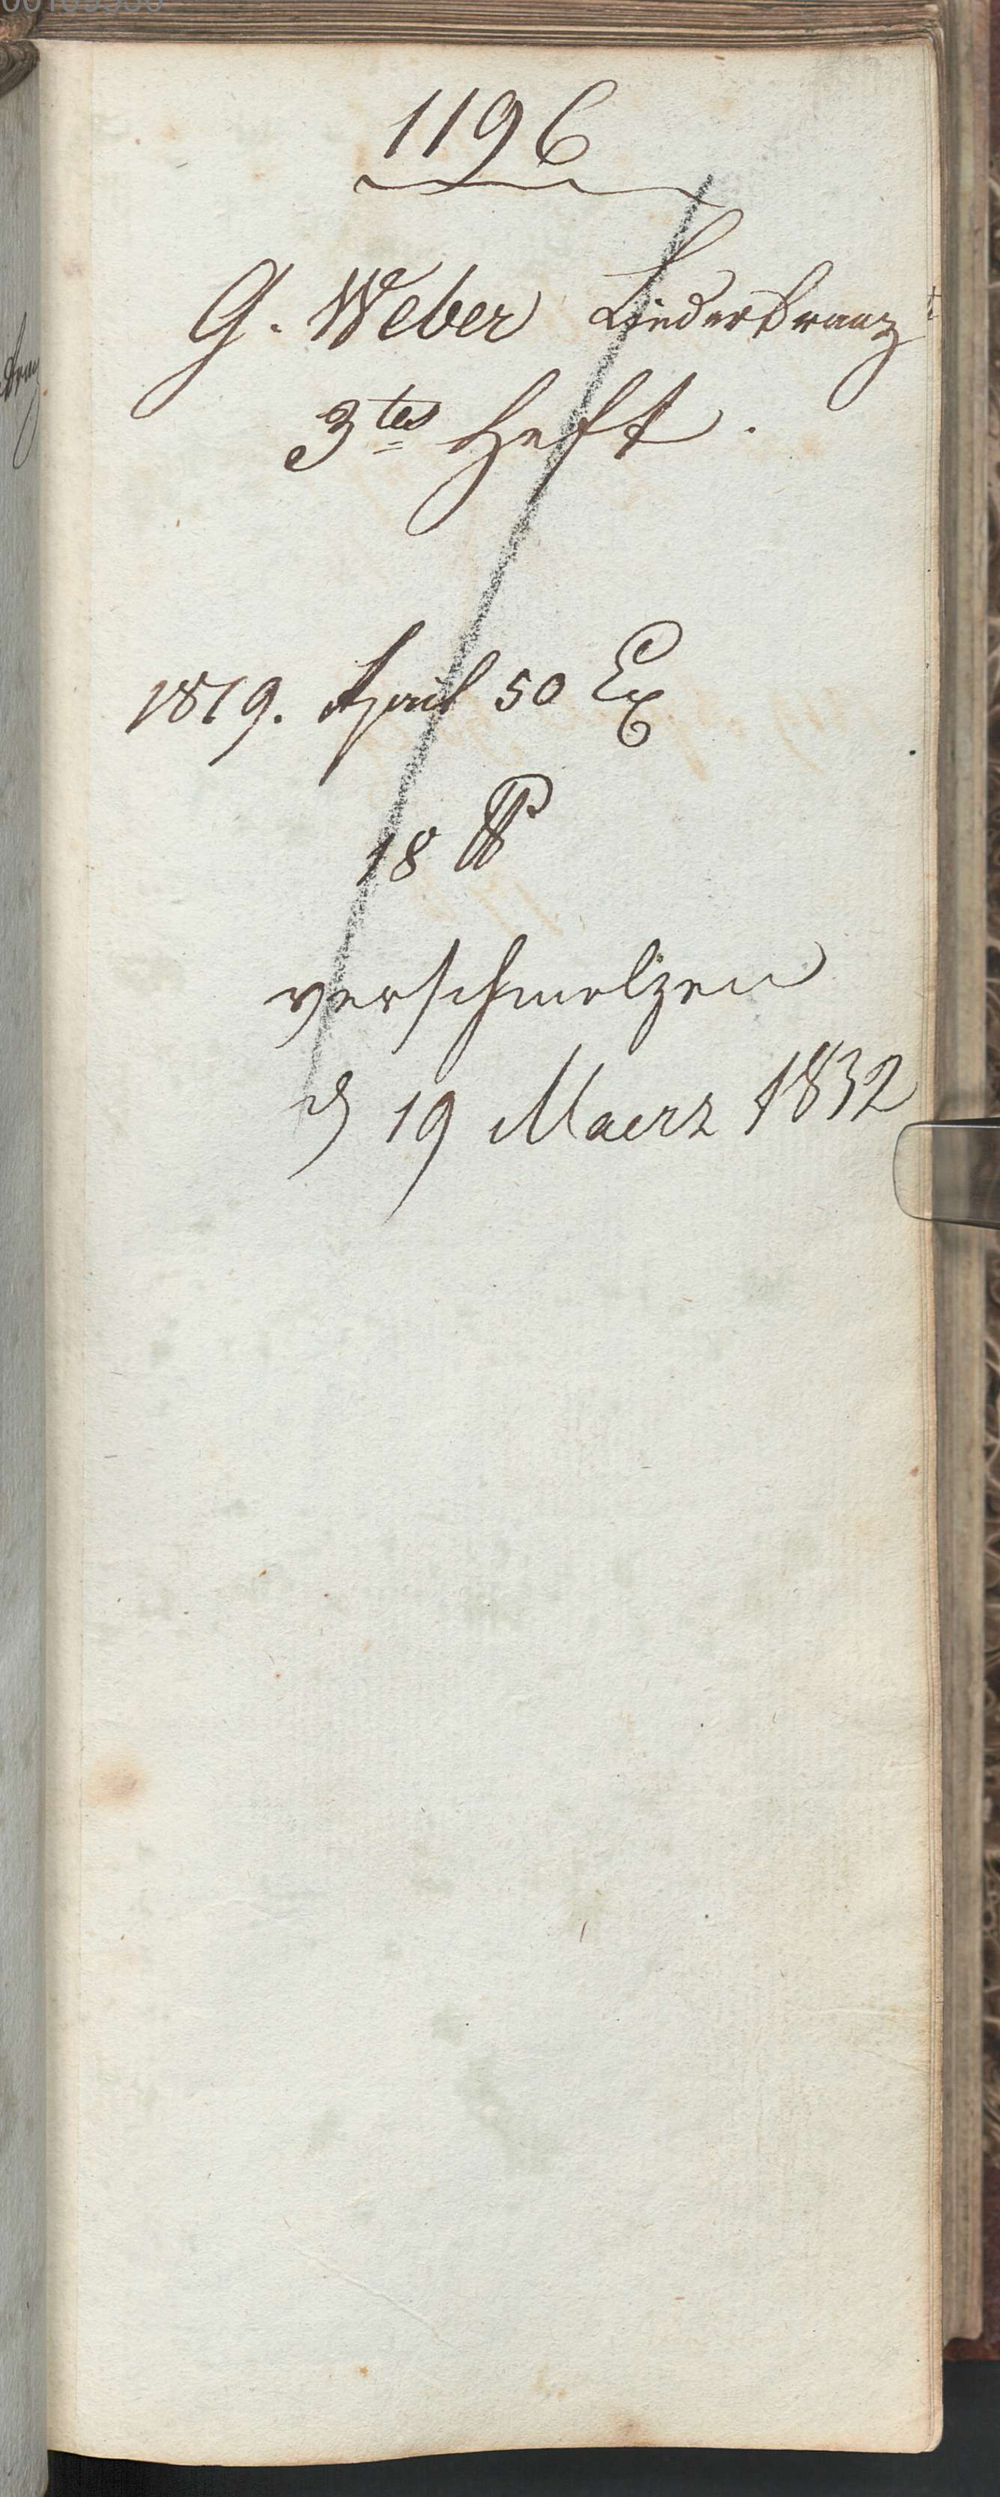 1196
G. Weber Liederkranz
3tes Heft.
1819. April 50 Ex
18
verschmolzen
d 19 Maerz 1832